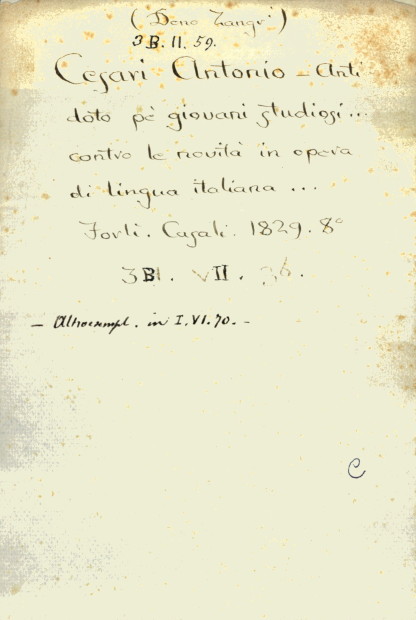 (Dono Zangri)
3B.II.59.
Cesari Antonio - Anti
doto pè giovani studiosi...
contro le novità in opera
di lingua italiana ...
Forlì. Casali. 1829. 8°
3B. VII. 36.
- Altro esempl. in I.VI.70. -
C